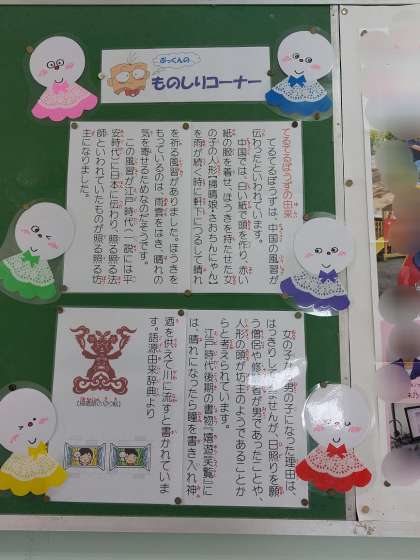 ぷっくんの
ものしりコーナー
てるてるぼうずの由来
てるてるぼうずは、中国の風習が
伝わったといわれています。
中国では、白い紙で頭を作り、赤い
紙の服を着せ、ほうきを持たせた女
の子の人形「掃晴娘・さおちんにゃん」
を雨が続く時に軒下につるして晴れ
を祈る風習がありました。ほうきを
もっているのは、雨雲をはき、晴れの
気を寄せるためなのだそうです。
この風習が江戸時代(一説には平
安時代)に日本に伝わり、照る照る法
師といわれていたものが照る照る坊
主になりました。
女の子から男の子になった理由は、
はっきりしていませんが、日照りを願
う僧侶や修験者が男であったことや、
人形の頭が坊主のようであることか
らと考えられています。
江戸時代後期の書物『嬉遊笑覧』に
は、晴れになったら瞳を書き入れ神
酒を供えて川に流すと書かれていま
す。語源由来辞典より